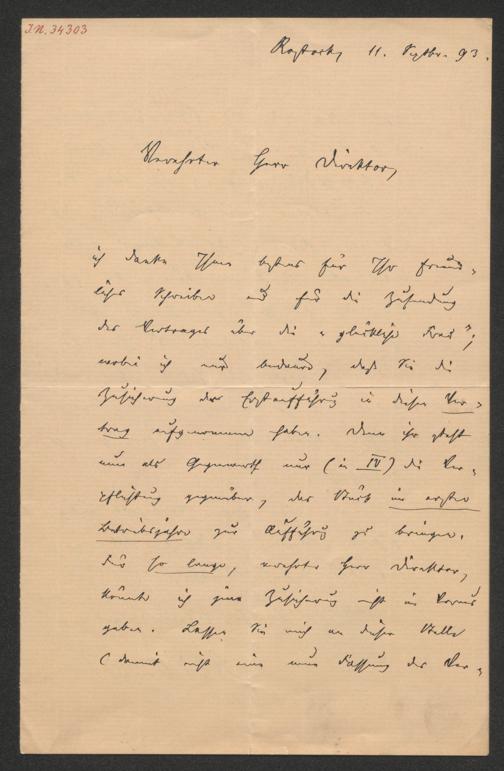 I.N. 34303
Rostock, 11. Septbr. 93.
Verehrter Herr Direktor,
ich danke Ihnen bestens für Ihr freund-
liches Schreiben und für die Zusendung
des Vertrages über die "glückliche Frau";
wobei ich nur bedaure, daß Sie die
Zusicherung der Erstaufführung in diesen Ver-
trag aufgenommen haben. Denn ihr steht
nun als Gegenwerth nur (in IV) die Ver-
pflichtung gegenüber, das Stück im ersten
Betriebsjahre zur Aufführung zu bringen.
Für so lange, verehrter Herr Direktor,
könnte ich jene Zusicherung nicht im Voraus
geben. Lassen Sie mich an dieser Stelle
(damit nicht eine neue Fassung des Ver-